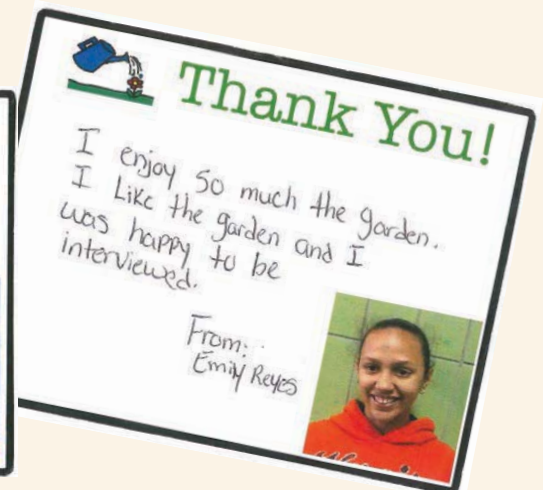 Thank You!
I enjoy so much the garden.
I Like the garden and I
was happy to be
interviewed.
From:
Emily Reyes